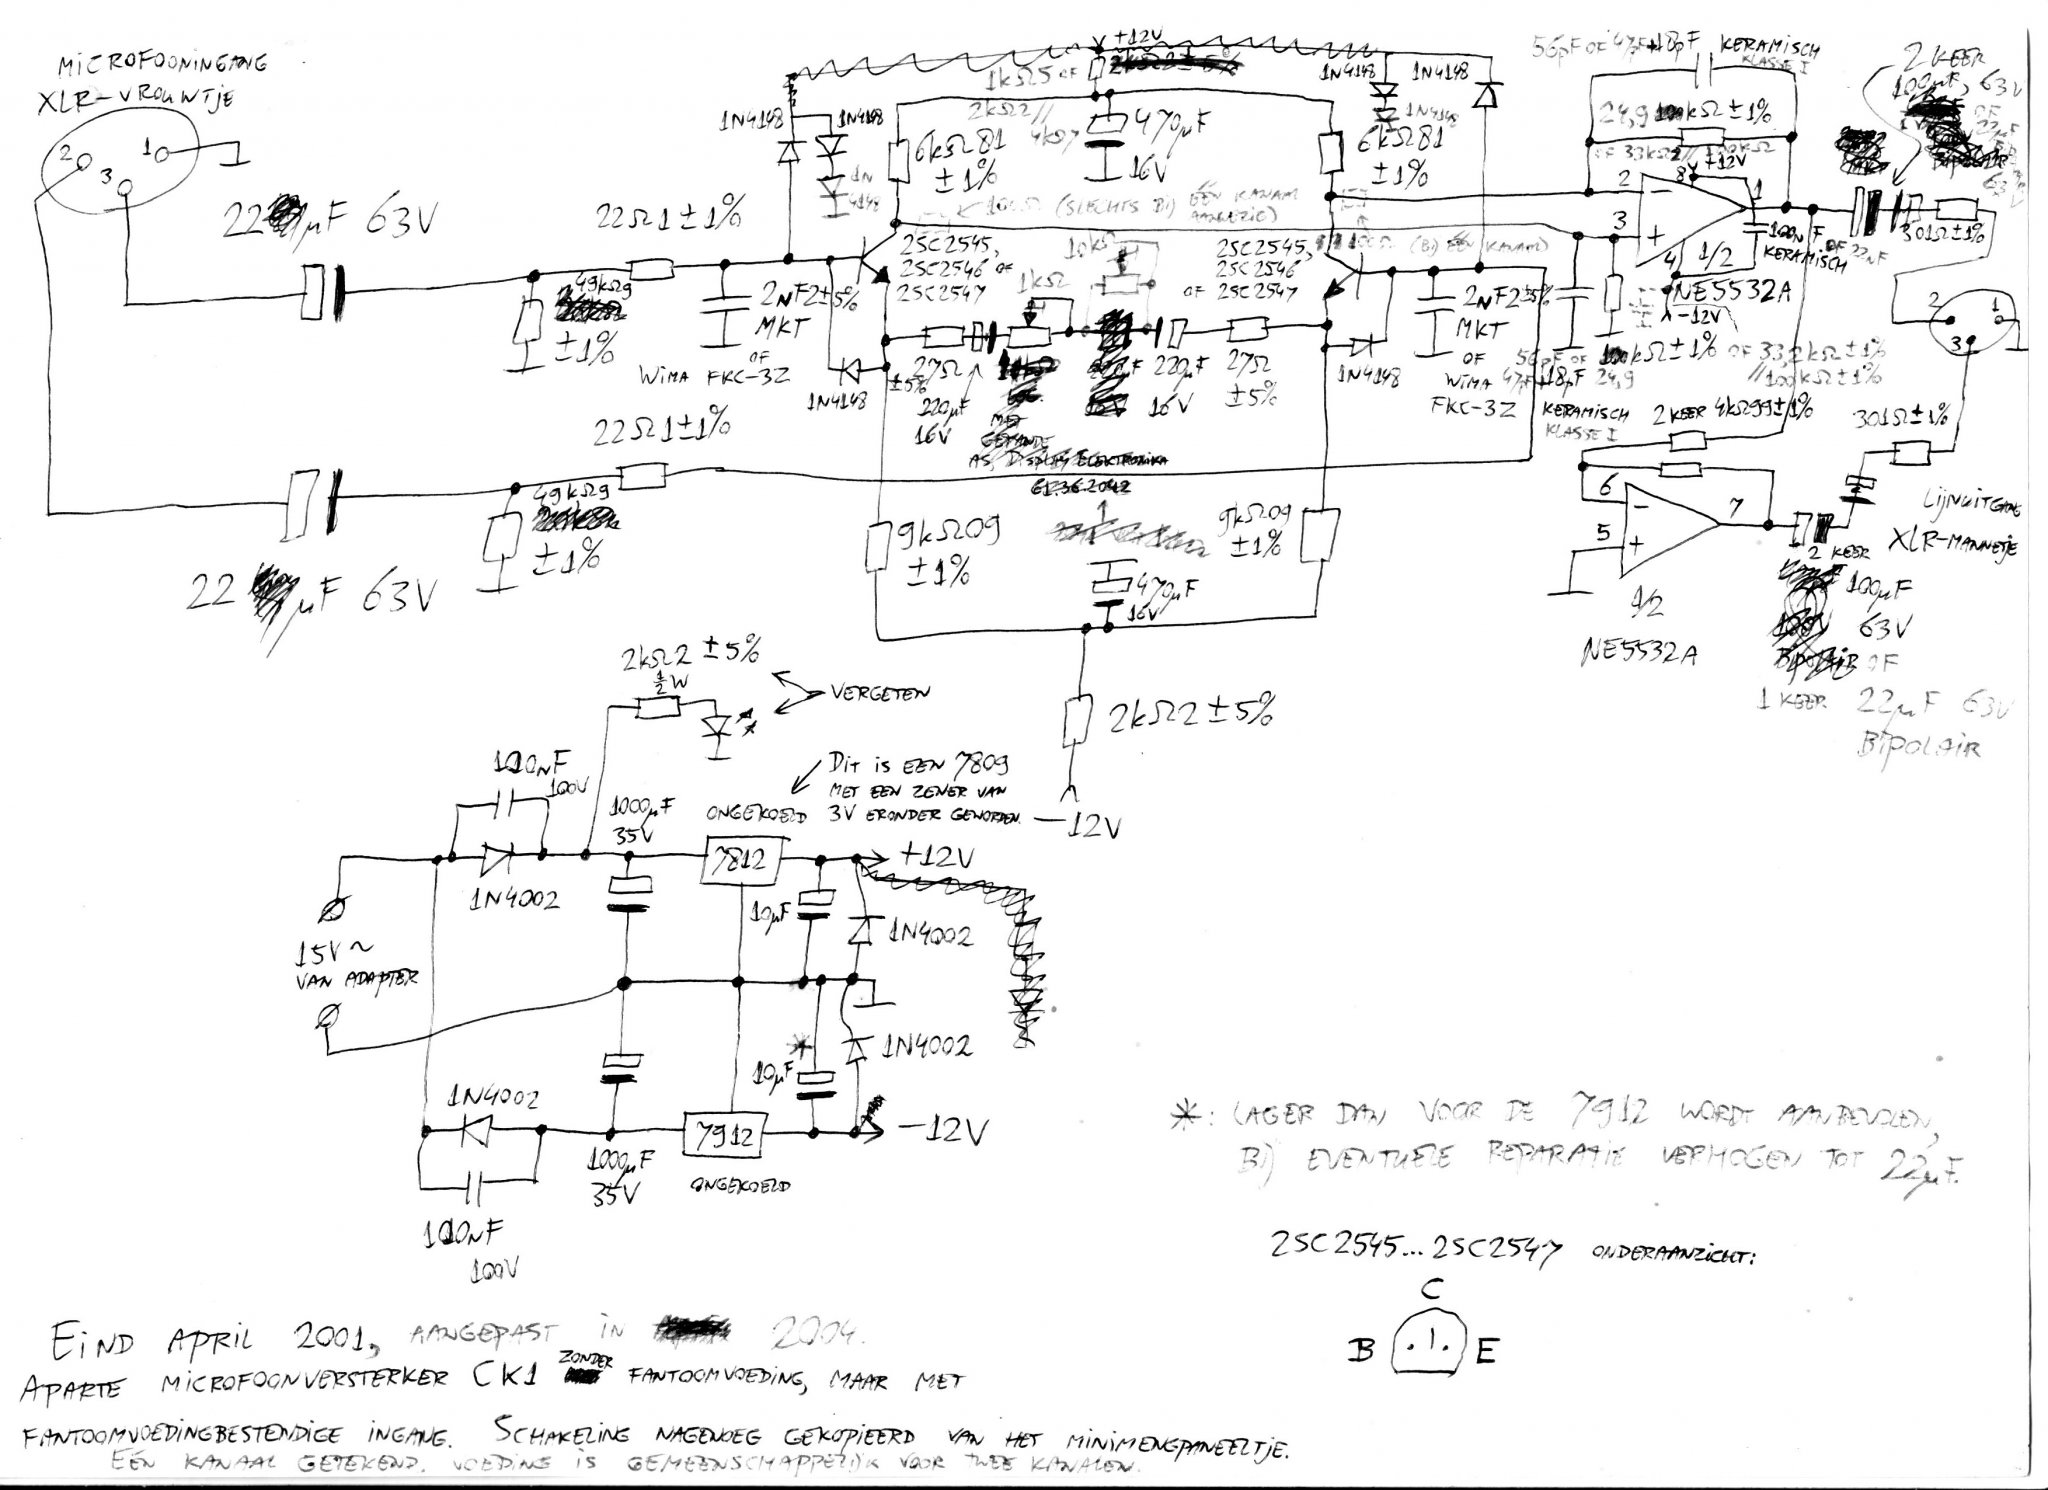 MICROFOONINGANG
XLR-VROUWTJE
1
2
3
22 µF 63V
22Ω1 ±1%
49kΩ9
±1%
2nF2 ±5%
MKT
OF
WIMA FKC-3Z
1N4148
1N4148
1N
4148
6kΩ81
±1%
+12V
1kΩ5 OF
2kΩ2//
4kΩ7
470µF
16V
(SLECHTS BIJ ÉÉN KANAAL
AANWEZIG)
2SC2545,
2SC2546 OF
2SC2547
1N4148
27Ω
±5%
220µF
16V
1kΩ
10kΩ
220µF
16V
27Ω
±5%
AS, DISPLAY ELEKTRONIKA
61.36.2042
6kΩ81
±1%
1N4148
1N4148
1N4148
(BIJ ÉÉN KANAAL)
2SC2545,
2SC2546
OF 2SC2547
1N4148
2nF2 ±5%
MKT
OF
WIMA
FKC-3Z
56pF OF 47pF+18pF KERAMISCH
KLASSE I
24,9 kΩ ±1%
OF 33kΩ2 // 100kΩ
+12V
2
3
8
1
4
1/2
NE5532A
-12V
100nF
KERAMISCH
OF 22nF
56pF OF
47pF+18pF
KERAMISCH
KLASSE I
24,9 kΩ ±1% OF 33,2kΩ ±1%
//100kΩ ±1%
2 KEER
100µF, 63V
OF
22µF
BIPOLAIR
63V
301Ω ±1%
2
1
3
2 KEER 4kΩ99 ±1%
301Ω ±1%
LIJNUITGANG
XLR-MANNETJE
6
5
7
1/2
NE5532A
2 KEER
100µF
63V
OF
1 KEER 22µF 63V
BIPOLAIR
22Ω1 ±1%
49kΩ9
±1%
22 µF 63V
9kΩ09
±1%
9kΩ09
±1%
470µF
16V
2kΩ2 ±5%
-12V
2kΩ2 ±5%
½W
VERGETEN
DIT IS EEN 7809
MET EEN ZENER VAN
3V ERONDER GEWORDEN.
100nF
100V
1N4002
1000µF
35V
ONGEKOELD
7812
10µF
+12V
1N4002
15V~
VAN ADAPTER
1N4002
10µF
*
1N4002
7912
-12V
1000µF
35V
ONGEKOELD
100nF
100V
*: LAGER DAN VOOR DE 7912 WORDT AANBEVOLEN,
BIJ EVENTUELE REPARATIE VERHOGEN TOT 22µF.
2SC2545...2SC2547 ONDERAANZICHT:
C
B
E
EIND APRIL 2001, AANGEPAST IN 2004.
APARTE MICROFOONVERSTERKER CK1 ZONDER FANTOOMVOEDING, MAAR MET
FANTOOMVOEDINGBESTENDIGE INGANG. SCHAKELING NAGENOEG GEKOPIEERD VAN HET MINIMENGPANEELTJE.
EÉN KANAAL GETEKEND. VOEDING IS GEMEENSCHAPPELIJK VOOR TWEE KANALEN.